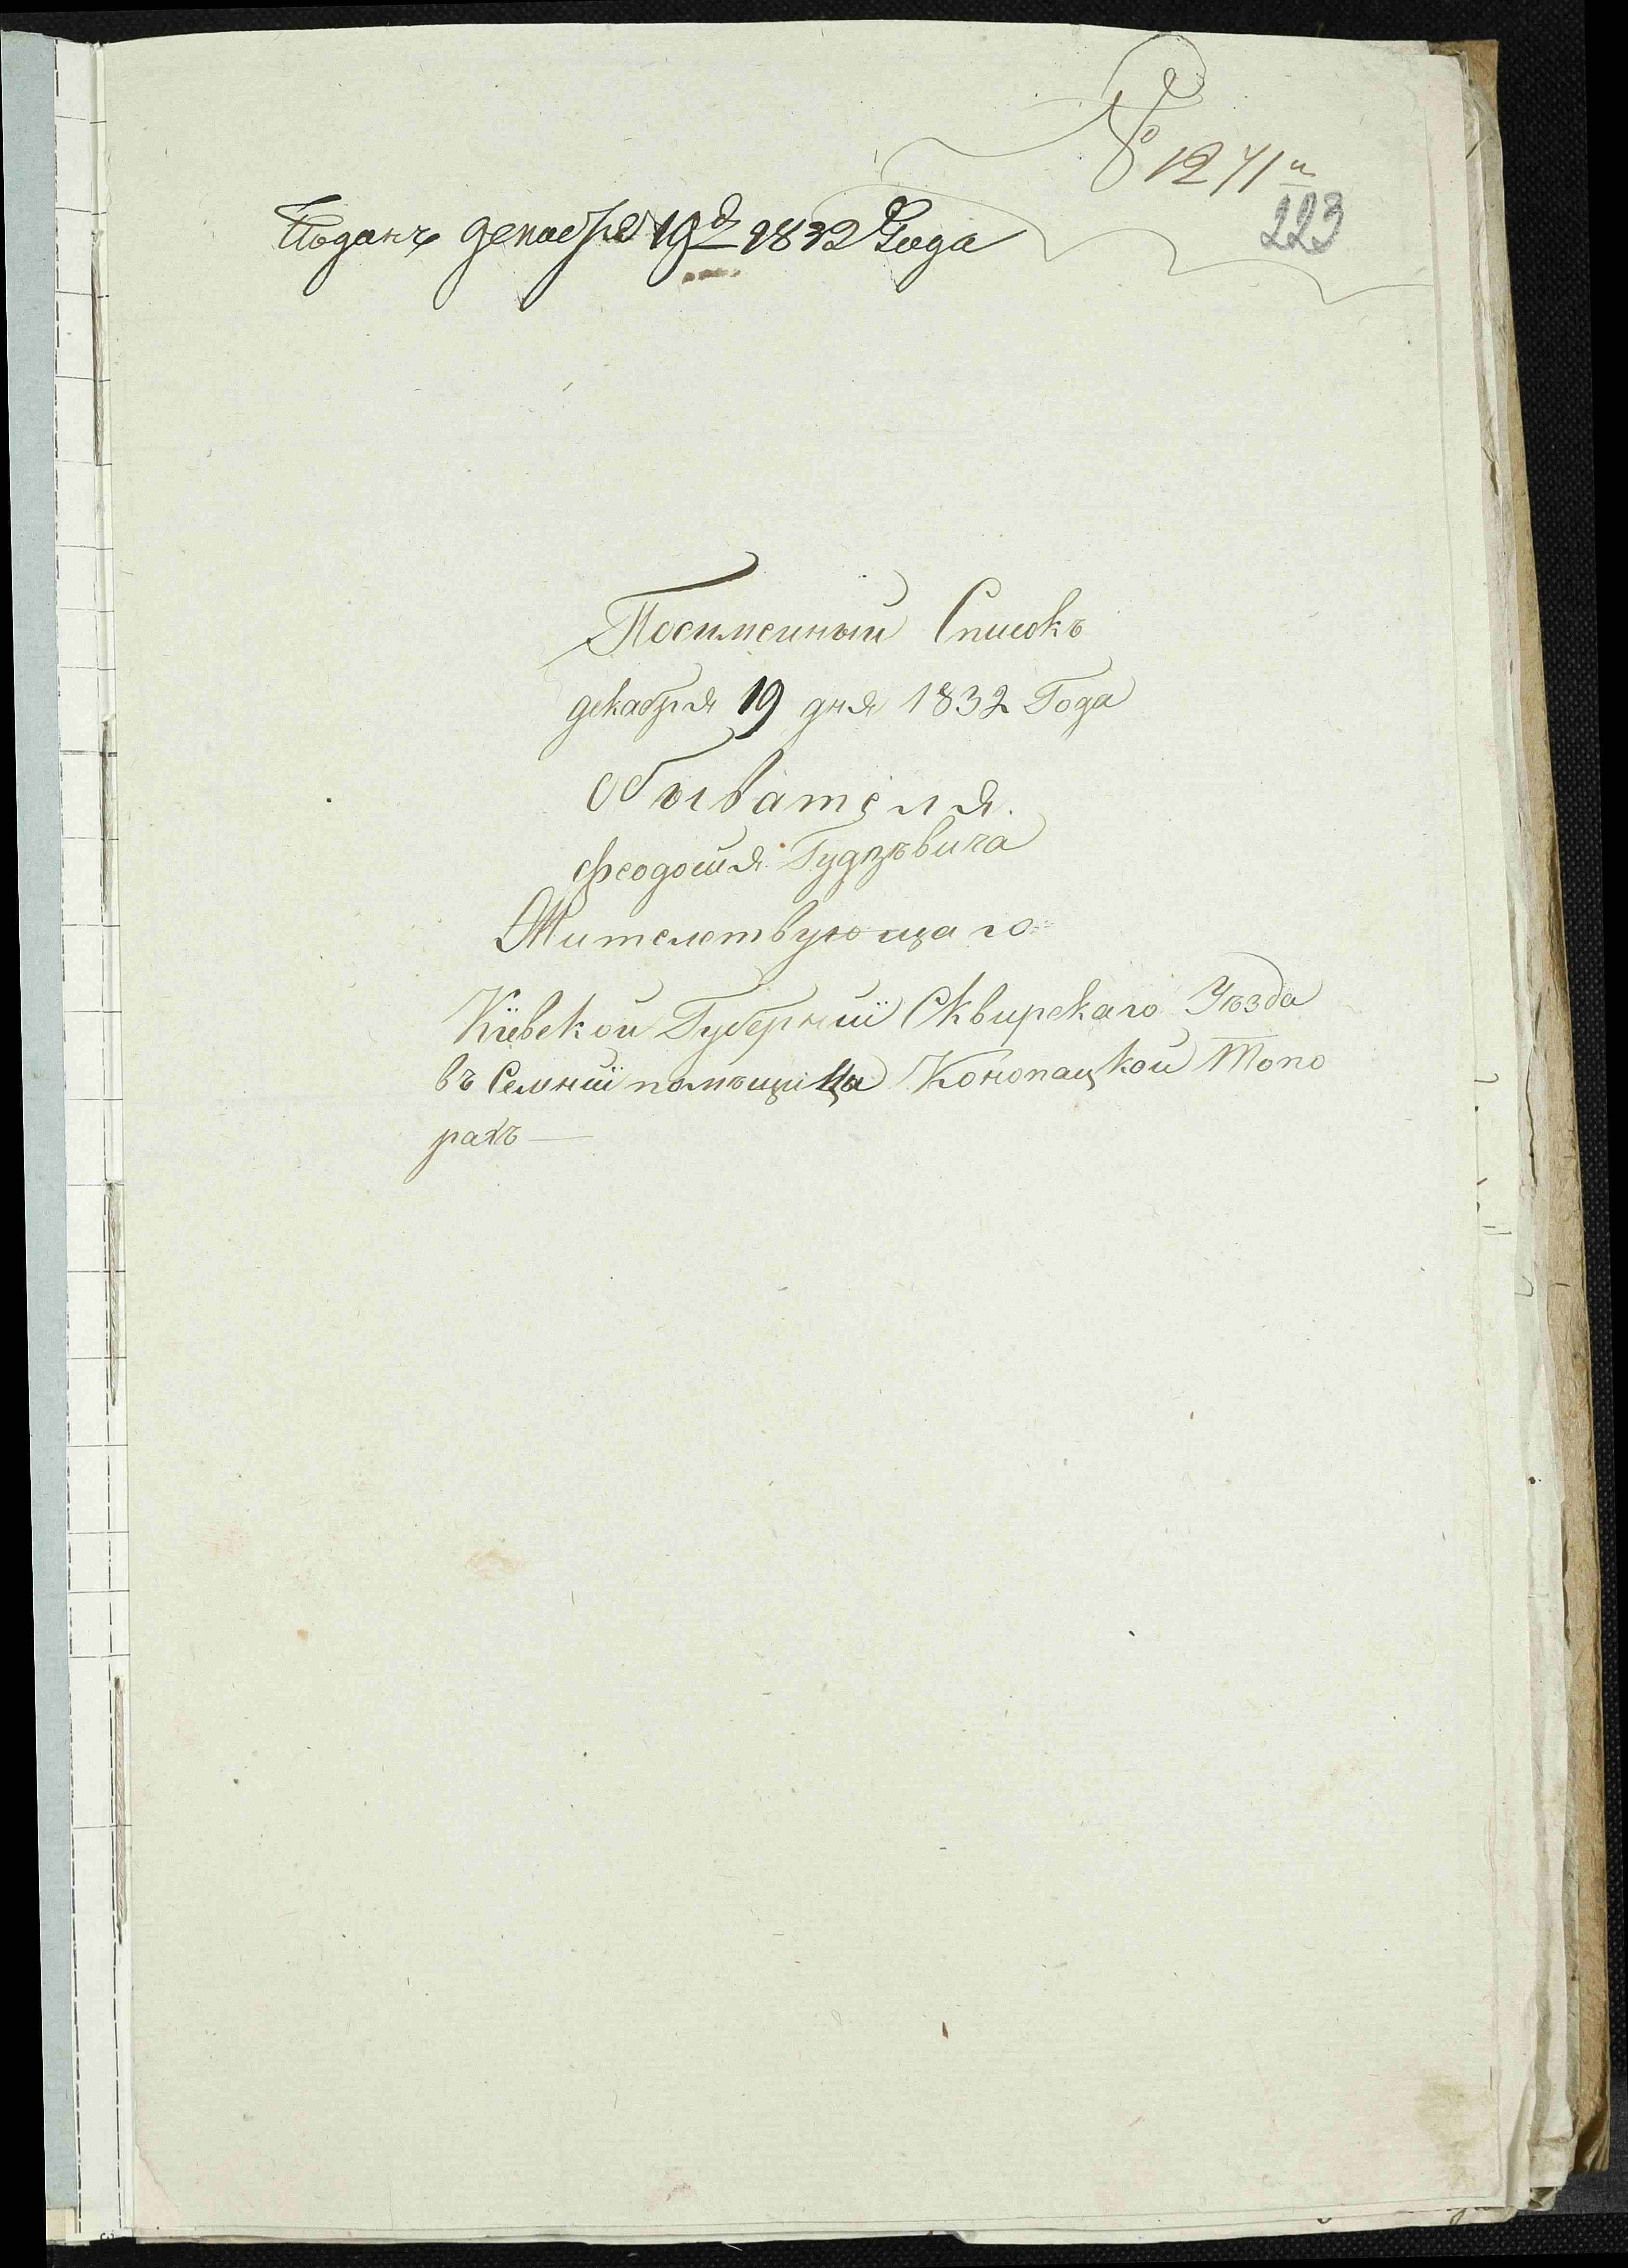 № 1241й
223
Поданъ декабря 19д 1832 Года
Поименный Списокъ
декабря 19 дня 1832 Года
Обывателя
Феодосия Гудзѣвича
Жителствующаго
Кіевской Губерніи Сквирскаго Уѣзда
въ Селѣніи помѣщица Конопацкой Топо
рахъ —